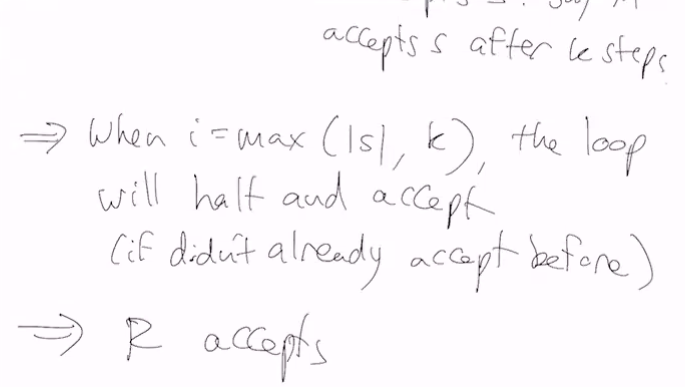 accepts s after k steps
⇒ When i = max (|s|, k), the loop
will halt and accept
(if didn't already accept before)
⇒ R accepts